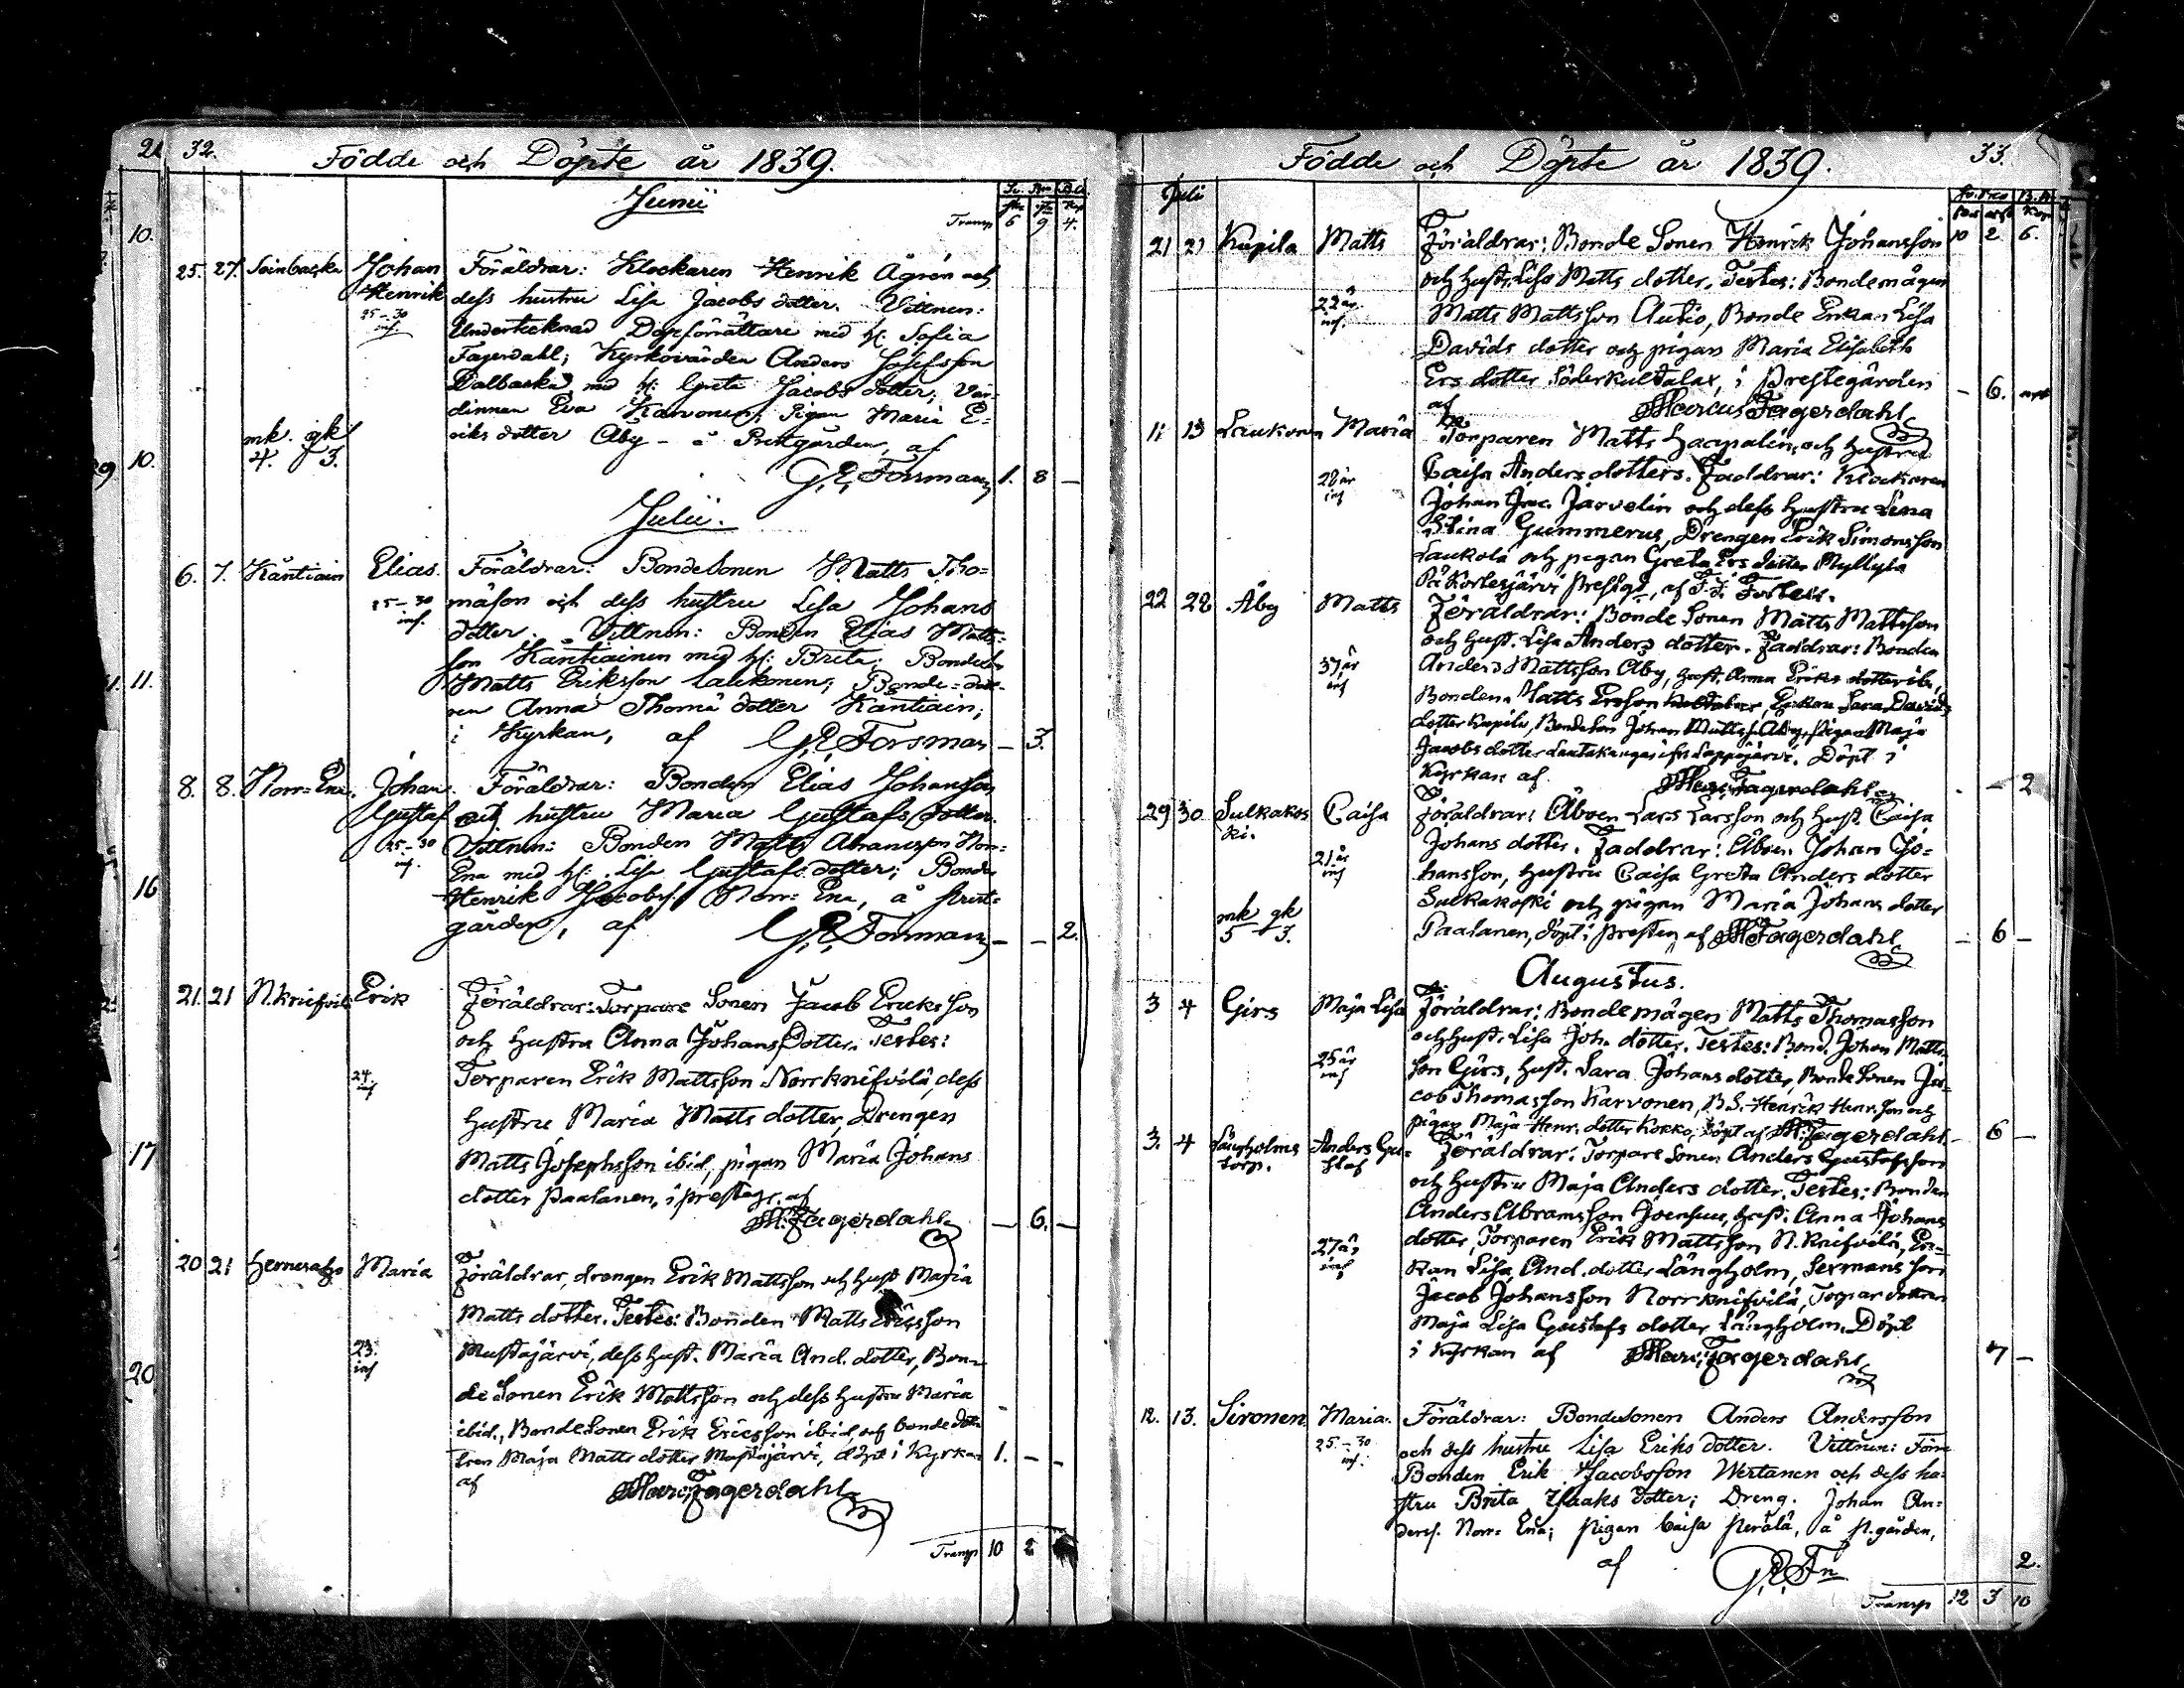 21 32. Födde och Döpte år 1839.
Junii
Transp 6 9 4.
10.
25. 27. Johan Föräldrar: Klockaren Henrik Ågren och
Henrik dess hustru Lisa Jacobs dotter. Vittnen:
25-30 Undertecknad Dopförrättare med h: Sofia
inf.
Fagerdahl; Kyrkovärden Anders Josefsson
Dalbacka med h: Greta Jacobs dotter; Vär-
dinnan Eva Karvonen; Pigan Maria E-
mk. gk. riks dotter Åby - å Prestgården, af
10. 4. 3.
G. E. Forsman 1. 8 -
Julii.
6. 7. Käntiäin Elias. Föräldrar: Bondesonen Matts Tho-
25-30 mäson och dess hustru Lisa Johans
inf.
dotter. Vittnen: Bonden Elias Matts-
son Kantiainen med h: Brita; Bondes.
11. Matts Eriksson Laukonen; Bonde-dott-
ren Anna Thomä dotter Käntiäin;
i Kyrkan, af G. E. Forsman - 3.
8. 8. Norr-Ena. Johan Föräldrar: Bonden Elias Johansson
Gustaf och hustru Maria Gustafs dotter.
25-30 Vittnen: Bonden Matts Abramsson Norr-
inf.
Ena med h: Lisa Gustafs dotter; Bonden
16 Henrik Jacobss. Norr-Ena, å Prest-
gården, af G. E. Forsman - - 2.
21. 21 N. Knifvilä Erik Föräldrar: Torpare Sonen Jacob Ericksson
och hustru Anna Johans Dotter. Testes:
24. Torparen Erik Mattsson Norrknifvilä, dess
inf
hustru Maria Matts dotter, Drengen
17 Matts Josephsson ibid, pigan Maria Johans
dotter Paalanen, i prestegr. af
M. Fagerdahl - 6. -
20 21 Maria Föräldrar, drengen Erik Mattsson och hust Maria
Matts dotter. Testes: Bonden Matts Ericsson
23. Mustajärvi, dess hust. Maria And. dotter, Bon-
inf
20 de Sonen Erik Mattsson och dess hustru Maria
ibid., Bonde Sonen Erik Ericsson ibid, och bonde dott-
tren Maja Matts dotter Mustajärvi, döpt i Kyrkan 1. - -
af Marc. Fagerdahl
Transp 10 2
Födde och Döpte år 1839. 33.
Juli
21 21 Kupila Matts Föräldrar: Bonde Sonen Henrik Johansson 10 2 6.
och hust. Lisa Matts dotter. Testes: Bondemågen
22 år Matts Mattsson Autio, Bonde Enkan Lisa
inf.
Davids dotter och pigan Maria Elisabeth
Ers dotter Söderkultalax, i Prestegården - 6.
af Marcus Fagerdahl
11 13 Laukonen Maria Torparen Matts Haapalin, och hustru
28 år Caisa Anders dotters. Faddrar: Klockaren
inf
Johan Jac. Jarvelin och dess hustru Lena
Stina Gummerus, Drengen Erik Simonsson
Laukola och pigan Greta Ers dotter Myllylä
På Kortesjärvi Prestgd., af
22 28 Åby Matts Föräldrar: Bonde Sonen Matts Mattsson
och hust. Lisa Anders dotter. Faddrar: Bonden
37 år Anders Mattsson Åby, hust. Anna Eriks dotter ib.,
inf
Bonden Matts Ersson Enkan Sara Davids
dotter Kupila, Bonde Son Johan Mattss. Åby, Pigan Maja
Jacobs dotter Lautakangas ifr. Lappojärvi. Döpt i
Kyrkan af Marc. Fagerdahl - - 2
29 30. Sulkakos Caisa Föräldrar: Åboen Lars Larsson och Hust. Caisa
ki.
21 år Johans dotter. Faddrar: Åboen Johan Jo-
inf
hansson, hustru Caisa Greta Anders dotter
mk gk Sulkakoski och pigan Maria Johans dotter
5 3. Paalanen, döpt i presteg. af M. Fagerdahl - 6 -
Augustus.
3 4 Girs Maja Lisa Föräldrar: Bondemågen Matts Thomasson
och hust. Lisa Joh. dotter. Testes: Bond. Johan Matts-
25 år son Girs, hust. Sara Johans dotter, Bonde Sonen Ja-
inf
cob Thomasson Karvonen, B.S. Henrik Henr. son och
pigan Maja Henr. dotter Kokko, döpt af M. Fagerdahl - 6 -
3. 4 Långholms Anders Gu- Föräldrar: Torpare Sonen Anders Gustafsson
torp. staf och hustru Maja Anders dotter. Testes: Bonden
Anders Abramsson Joensuu, hust. Anna Johans
27 år dotter, Torparen Erik Mattsson N. Knifvilä, En-
inf
kan Lisa And. dotter Långholm, Sexmans son
Jacob Johansson Norrknifvilä, Torpar dottren
Maja Lisa Gustafs dotter Långholm. Döpt
i Kyrkan af Marc. Fagerdahl 7 -
12. 13. Sironen Maria. Föräldrar: Bondesonen Anders Andersson
25-30 och dess hustru Lisa Eriks dotter. Vittnen: Förre
inf.
Bonden Erik Jacobsson Wertanen och dess hu-
stru Brita Isaaks dotter; Dreng. Johan An-
derss. Norr-Ena; Pigan Caisa Perälä, å P.gården,
af G. E. Fn 2.
Transp 12 3 10